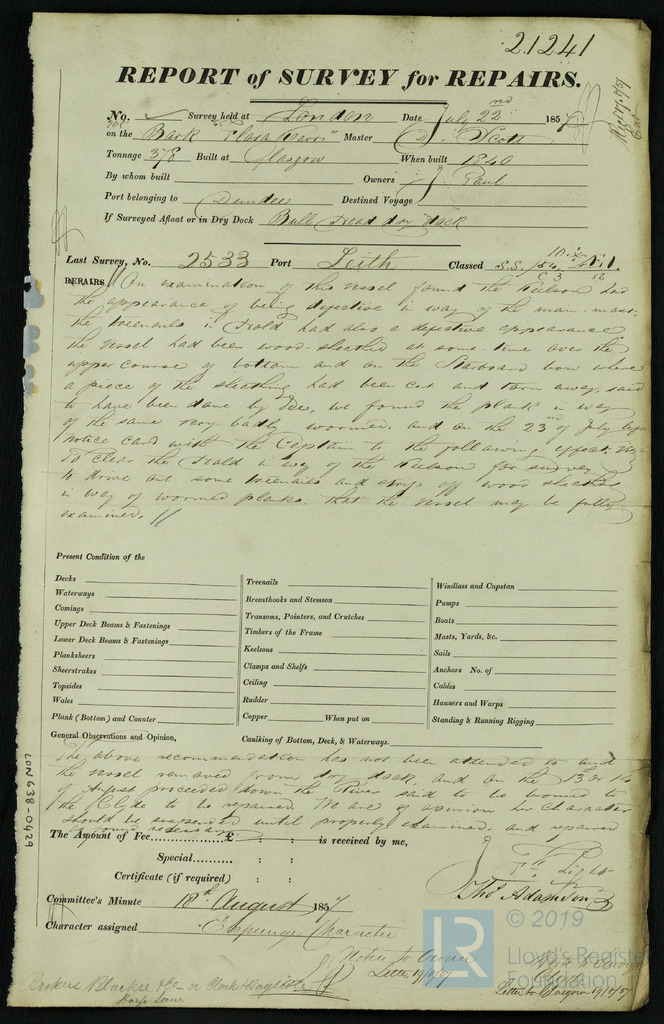 21241
REPORT of SURVEY for REPAIRS.
No. Survey held at London Date July 22nd 1857
on the Bark "Flora Kerr" Master D. Scott
Tonnage 378 Built at Glasgow When built 1840
By whom built Owners J. Paul
Port belonging to Dundee Destined Voyage
If Surveyed Afloat or in Dry Dock Bull Head dry dock
Last Survey, No. 2533 Port Leith Classed
REPAIRS On examination of this vessel found the Keelson had
the appearance of being defective in way of the main-mast.
the treenails in Hold had also a defective appearance
the vessel had been wood-sheathed at some time over the
upper course of bottom and on the Starboard bow where
a piece of the sheathing had been cut and torn away, said
to have been done by Ice, we found the plank in way
of the same very badly wormed. and on the 23rd of July left
notice card with the Captain to the following effect. Viz
To clear the Hold in way of the Keelson for survey.
to drive out some treenails and strip off wood sheathing
in way of wormed planks. that the vessel may be fully
examined. //
Present Condition of the
Decks
Waterways
Comings
Upper Deck Beams & Fastenings
Lower Deck Beams & Fastenings
Planksheers
Sheerstrakes
Topsides
Wales
Plank (Bottom) and Counter
Treenails
Breasthooks and Stemson
Transoms, Pointers, and Crutches
Timbers of the Frame
Keelsons
Clamps and Shelfs
Ceiling
Rudder
Copper When put on
Windlass and Capstan
Pumps
Boats
Masts, Yards, &c.
Sails
Anchors No. of
Cables
Hawsers and Warps
Standing & Running Rigging
General Observations and Opinion, Caulking of Bottom, Deck, & Waterways.
The above recommendation has not been attended to and
the vessel removed from dry dock and on the 13 or 14
of August proceeded down the River said to be bound to
the Clyde to be repaired. We are of opinion her Character
should be suspended until properly examined, and repaired
if found necessary
The Amount of Fee............£ : : is received by me,
Special.......... : :
Certificate (if required) : :
Thos Adamson
Committee's Minute 18th August 1857
Character assigned Expunge Character
Notice to Owners
Letter 19/8/57
Letter to Glasgow 19/8/57
LON 638-0429
LR © 2019
Lloyd's Register
Foundation